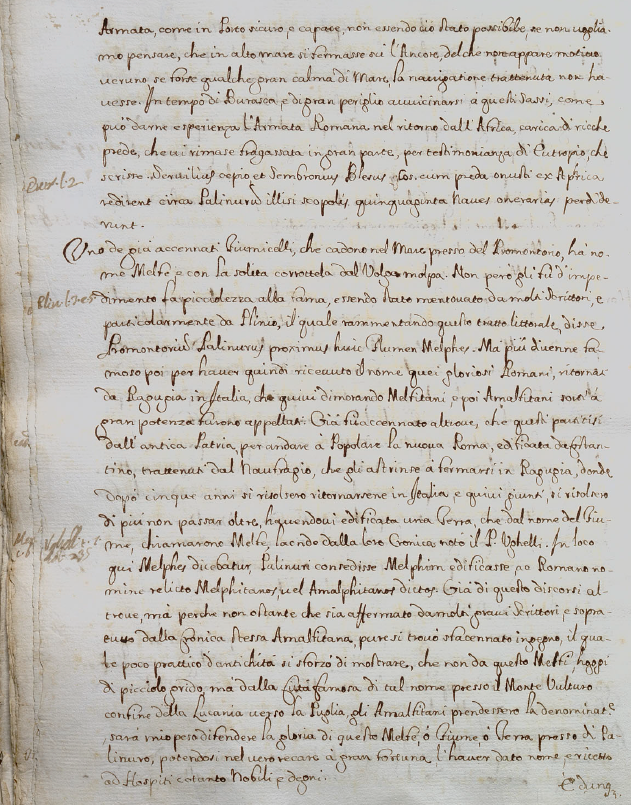 Armata, come in Porto sicuro, e capace, non essendo ciò stato possibile, se non voglia-
mo pensare, che in alto mare si fermasse sù l'Ancore, del che non appare motivo
veruno, se forse qualche gran calma di Mare, la navigatione trattenuta non ha-
vesse. In tempo di Burasca, e di gran periglio avvicinarsi a questi Sassi, come
può darne esperienza l'Armata Romana nel ritorno dall'Africa, carica di ricche
prede, che vi rimase fragassata in gran parte, per testimonianza di Eutropio, che
scrisse. Servilius Cepio, et Sembronius Blesus Cos. cum preda onusti ex Africa
redirent circa Palinurũ illisi scopolis quinquaginta Naves onerarias perdide-
runt.
Eutr. l. 2
Uno de già accennati Fiumicelli, che cadono nel Mare presso del Promontorio, hà no-
me Melfe, e con la solita corrottela dal Volgo molpa. Non però gli fù d'impe-
dimento la picciolezza alla fama, essendo stato mentovato da molti Scrittori, e
Plin. l. 3. c. 5
particolarmente da Plinio, il quale rammentando questo tratto littorale, disse.
Promontoriũ Palinurus proximus huic Flumen Melphes. Mà più divenne fa-
moso poi per haver quindi ricevuto il nome quei gloriosi Romani, ritornati
da Ragugia in Italia, che quivi dimorando Melfitani e poi Amalfitani sorti à
gran potenza furono appellati. Già fù accennato altrove, che questi partitisi
dall'antica Patria, per andare à Popolare la nuova Roma, edificata da Costan-
tino, trattenuti dal Naufragio, che gli astrinse à fermarsi in Ragugia, donde
dopò cinque anni si risolsero ritornarsene in Italia, e quivi giunti, si risolsero
di più non passar oltre, havendovi edificata una Terra, che dal nome del Fiu-
me, chiamarono Melfe, laonde dalla loro Cronica notò il P. Ughelli. In loco
Ughell.
qui Melphes dicebatur, Palinuri consedisse Melphim edificasse, ac Romano no-
mine relicto Melphitanos, vel Amalphitanos dictos. Già di questo discorsi al-
trove, mà perche non ostante che sia affermato da molti gravi Scrittori, e sopra-
tutto dalla Cronica stessa Amalfitana, pure si trovò sfacennato ingegno, il qua-
le poco prattico d'antichità si sforzò di mostrare, che non da questo Melfi hoggi
di picciolo grido, mà dalla Città famosa di tal nome presso il Monte Vulturo
confine della Lucania verso la Puglia, gli Amalfitani prendessero la denominat.e
sarà mio peso difendere la gloria di questo Melfe, ò Fiume, ò Terra presso di Pa-
linuro, potendosi nel vero recare à gran fortuna l'haver dato nome, e ricetto
ad Hospiti cotanto Nobili e degni.
E dunq.